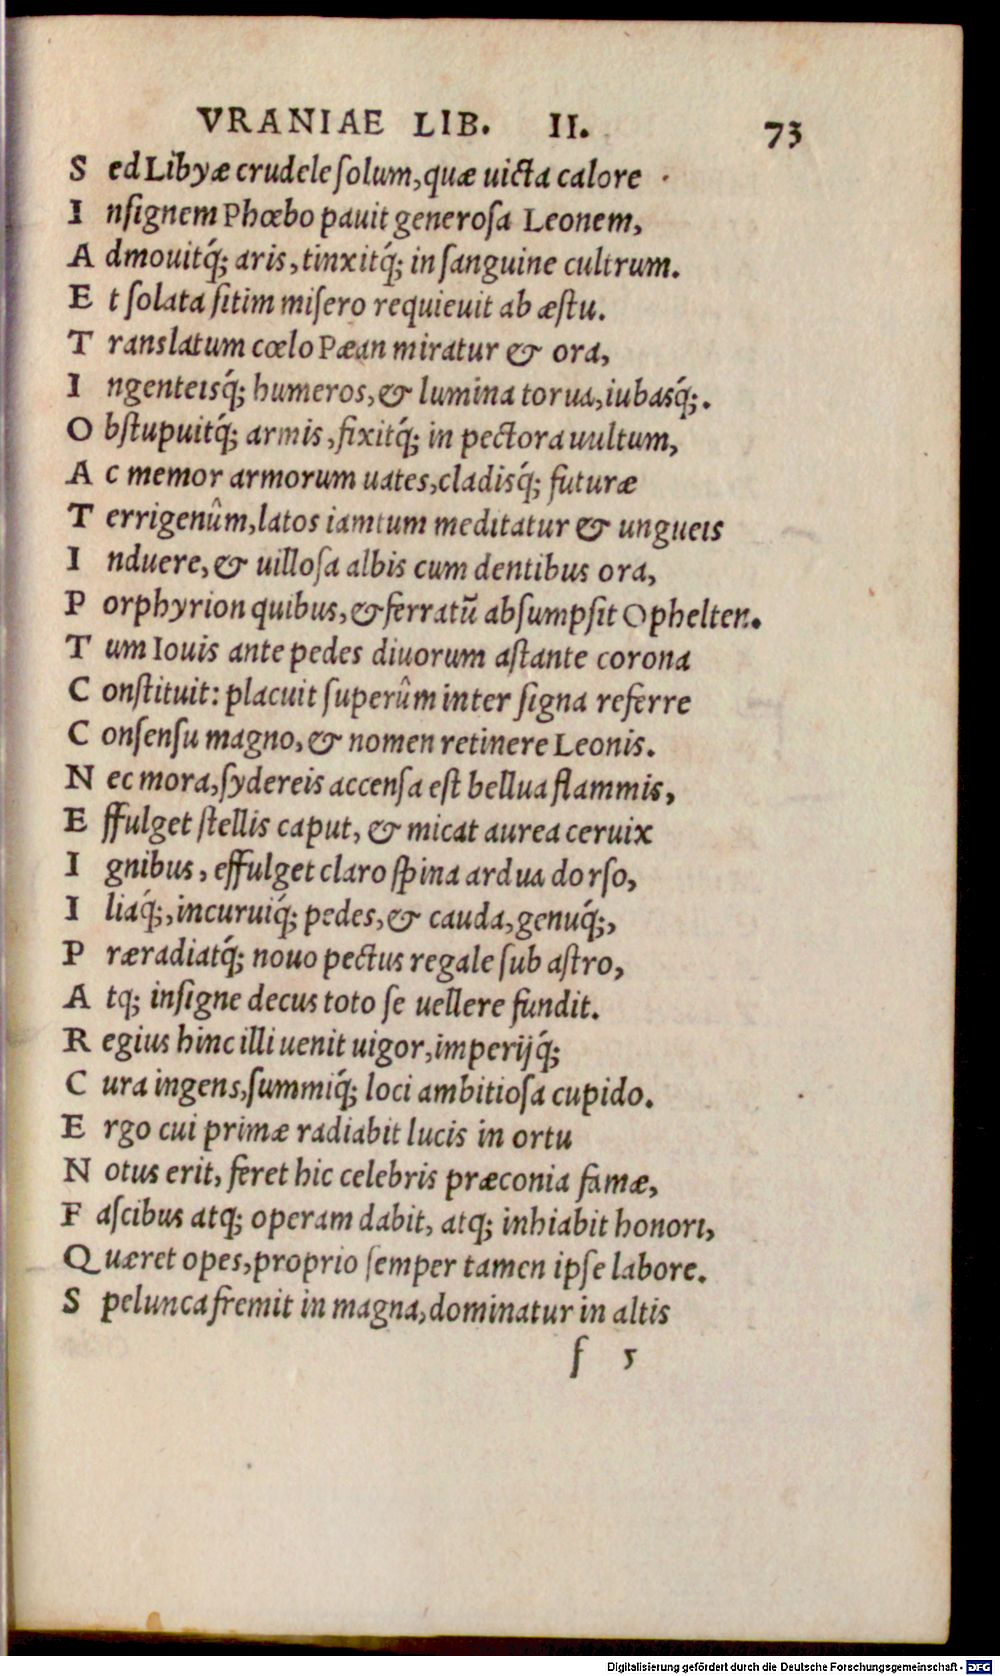 VRANIAE LIB. II. 73
S ed Libyæ crudele ſolum, quæ uicta calore
I nſignem Phœbo pauit generoſa Leonem,
A dmouitq́; aris, tinxitq́; in ſanguine cultrum.
E t ſolata ſitim miſero requieuit ab æſtu.
T ranslatum cœlo Pæan miratur & ora,
I ngenteisq́; humeros, & lumina torua, iubasq́;.
O bſtupuitq́; armis, fixitq́; in pectora uultum,
A c memor armorum uates, cladisq́; futuræ
T errigenûm, latos iamtum meditatur & ungueis
I nduere, & uilloſa albis cum dentibus ora,
P orphyrion quibus, & ferratū abſumpſit Ophelten.
T um Iouis ante pedes diuorum aſtante corona
C onſtituit: placuit ſuperûm inter ſigna referre
C onſenſu magno, & nomen retinere Leonis.
N ec mora, ſydereis accenſa eſt bellua flammis,
E ffulget ſtellis caput, & micat aurea ceruix
I gnibus, effulget claro ſpina ardua dorſo,
I liaq́;, incuruiq́; pedes, & cauda, genuq́;,
P ræradiatq́; nouo pectus regale ſub aſtro,
A tq; inſigne decus toto ſe uellere fundit.
R egius hinc illi uenit uigor, imperijq́;
C ura ingens, ſummiq́; loci ambitioſa cupido.
E rgo cui primæ radiabit lucis in ortu
N otus erit, feret hic celebris præconia famæ,
F aſcibus atq; operam dabit, atq; inhiabit honori,
Q uæret opes, proprio ſemper tamen ipſe labore.
S pelunca fremit in magna, dominatur in altis
f 5
Digitalisierung gefördert durch die Deutsche Forschungsgemeinschaft - DFG